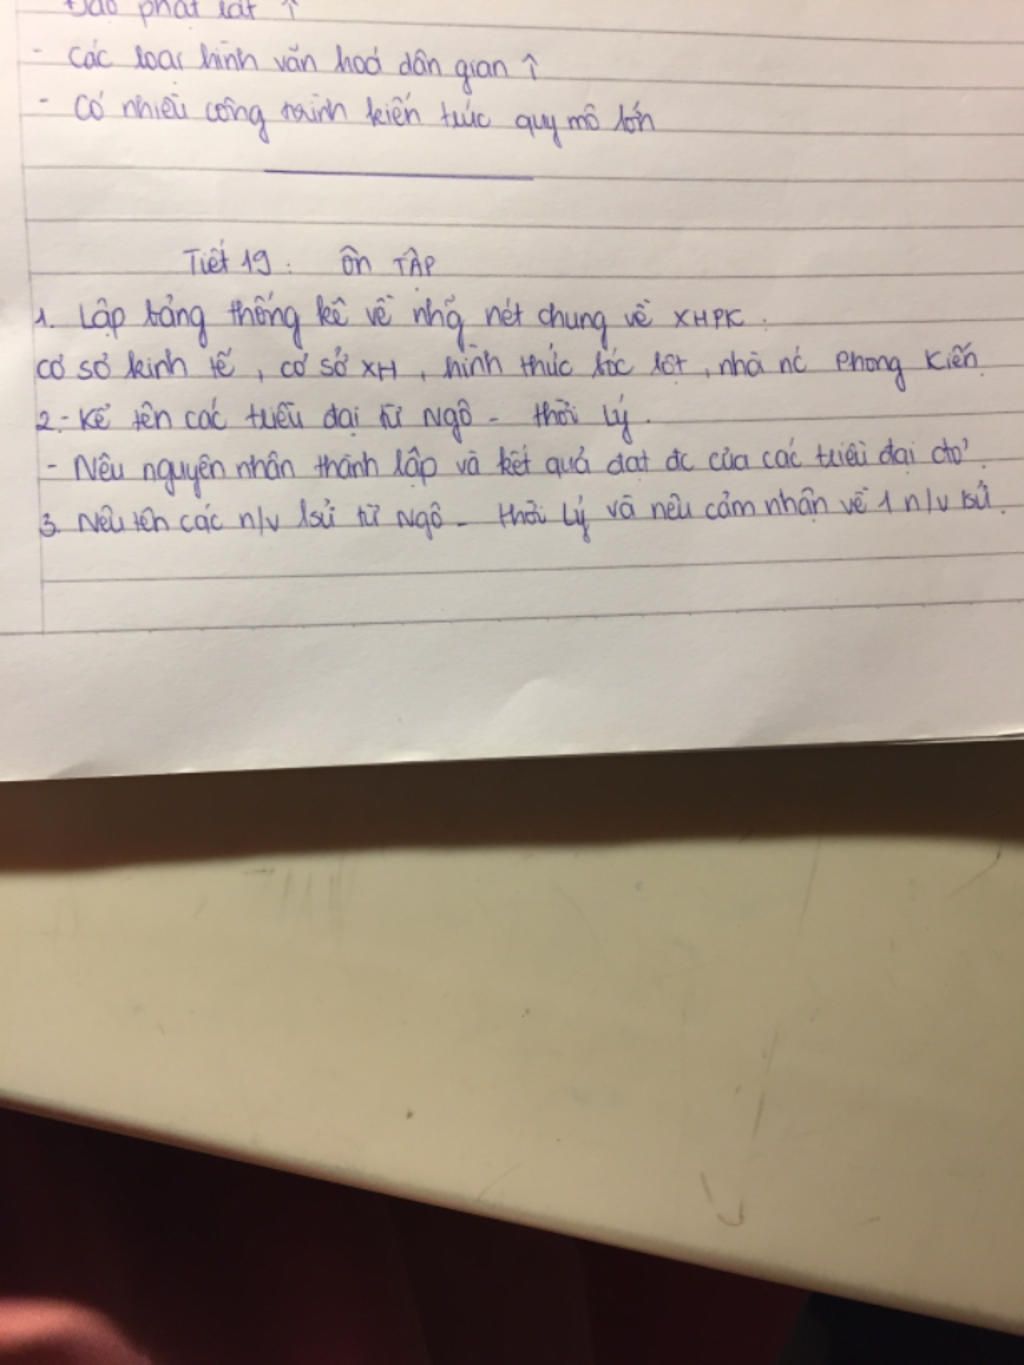 Đạo phật rất ↑
- Các loại hình văn hoá dân gian ↑
- Có nhiều công trình kiến trúc quy mô lớn
Tiết 19: ÔN TẬP
1. Lập bảng thống kê về nhg̃ nét chung về XHPK:
Cơ sở kinh tế, cơ sở XH, hình thức bóc lột, nhà nc Phong Kiến.
2.- Kể tên các triều đại từ Ngô - thời Lý.
- Nêu nguyên nhân thành lập và kết quả đạt đc của các triều đại đó.
3. Nêu tên các n/v lsử từ Ngô - thời Lý và nêu cảm nhận về 1 n/v lsử.